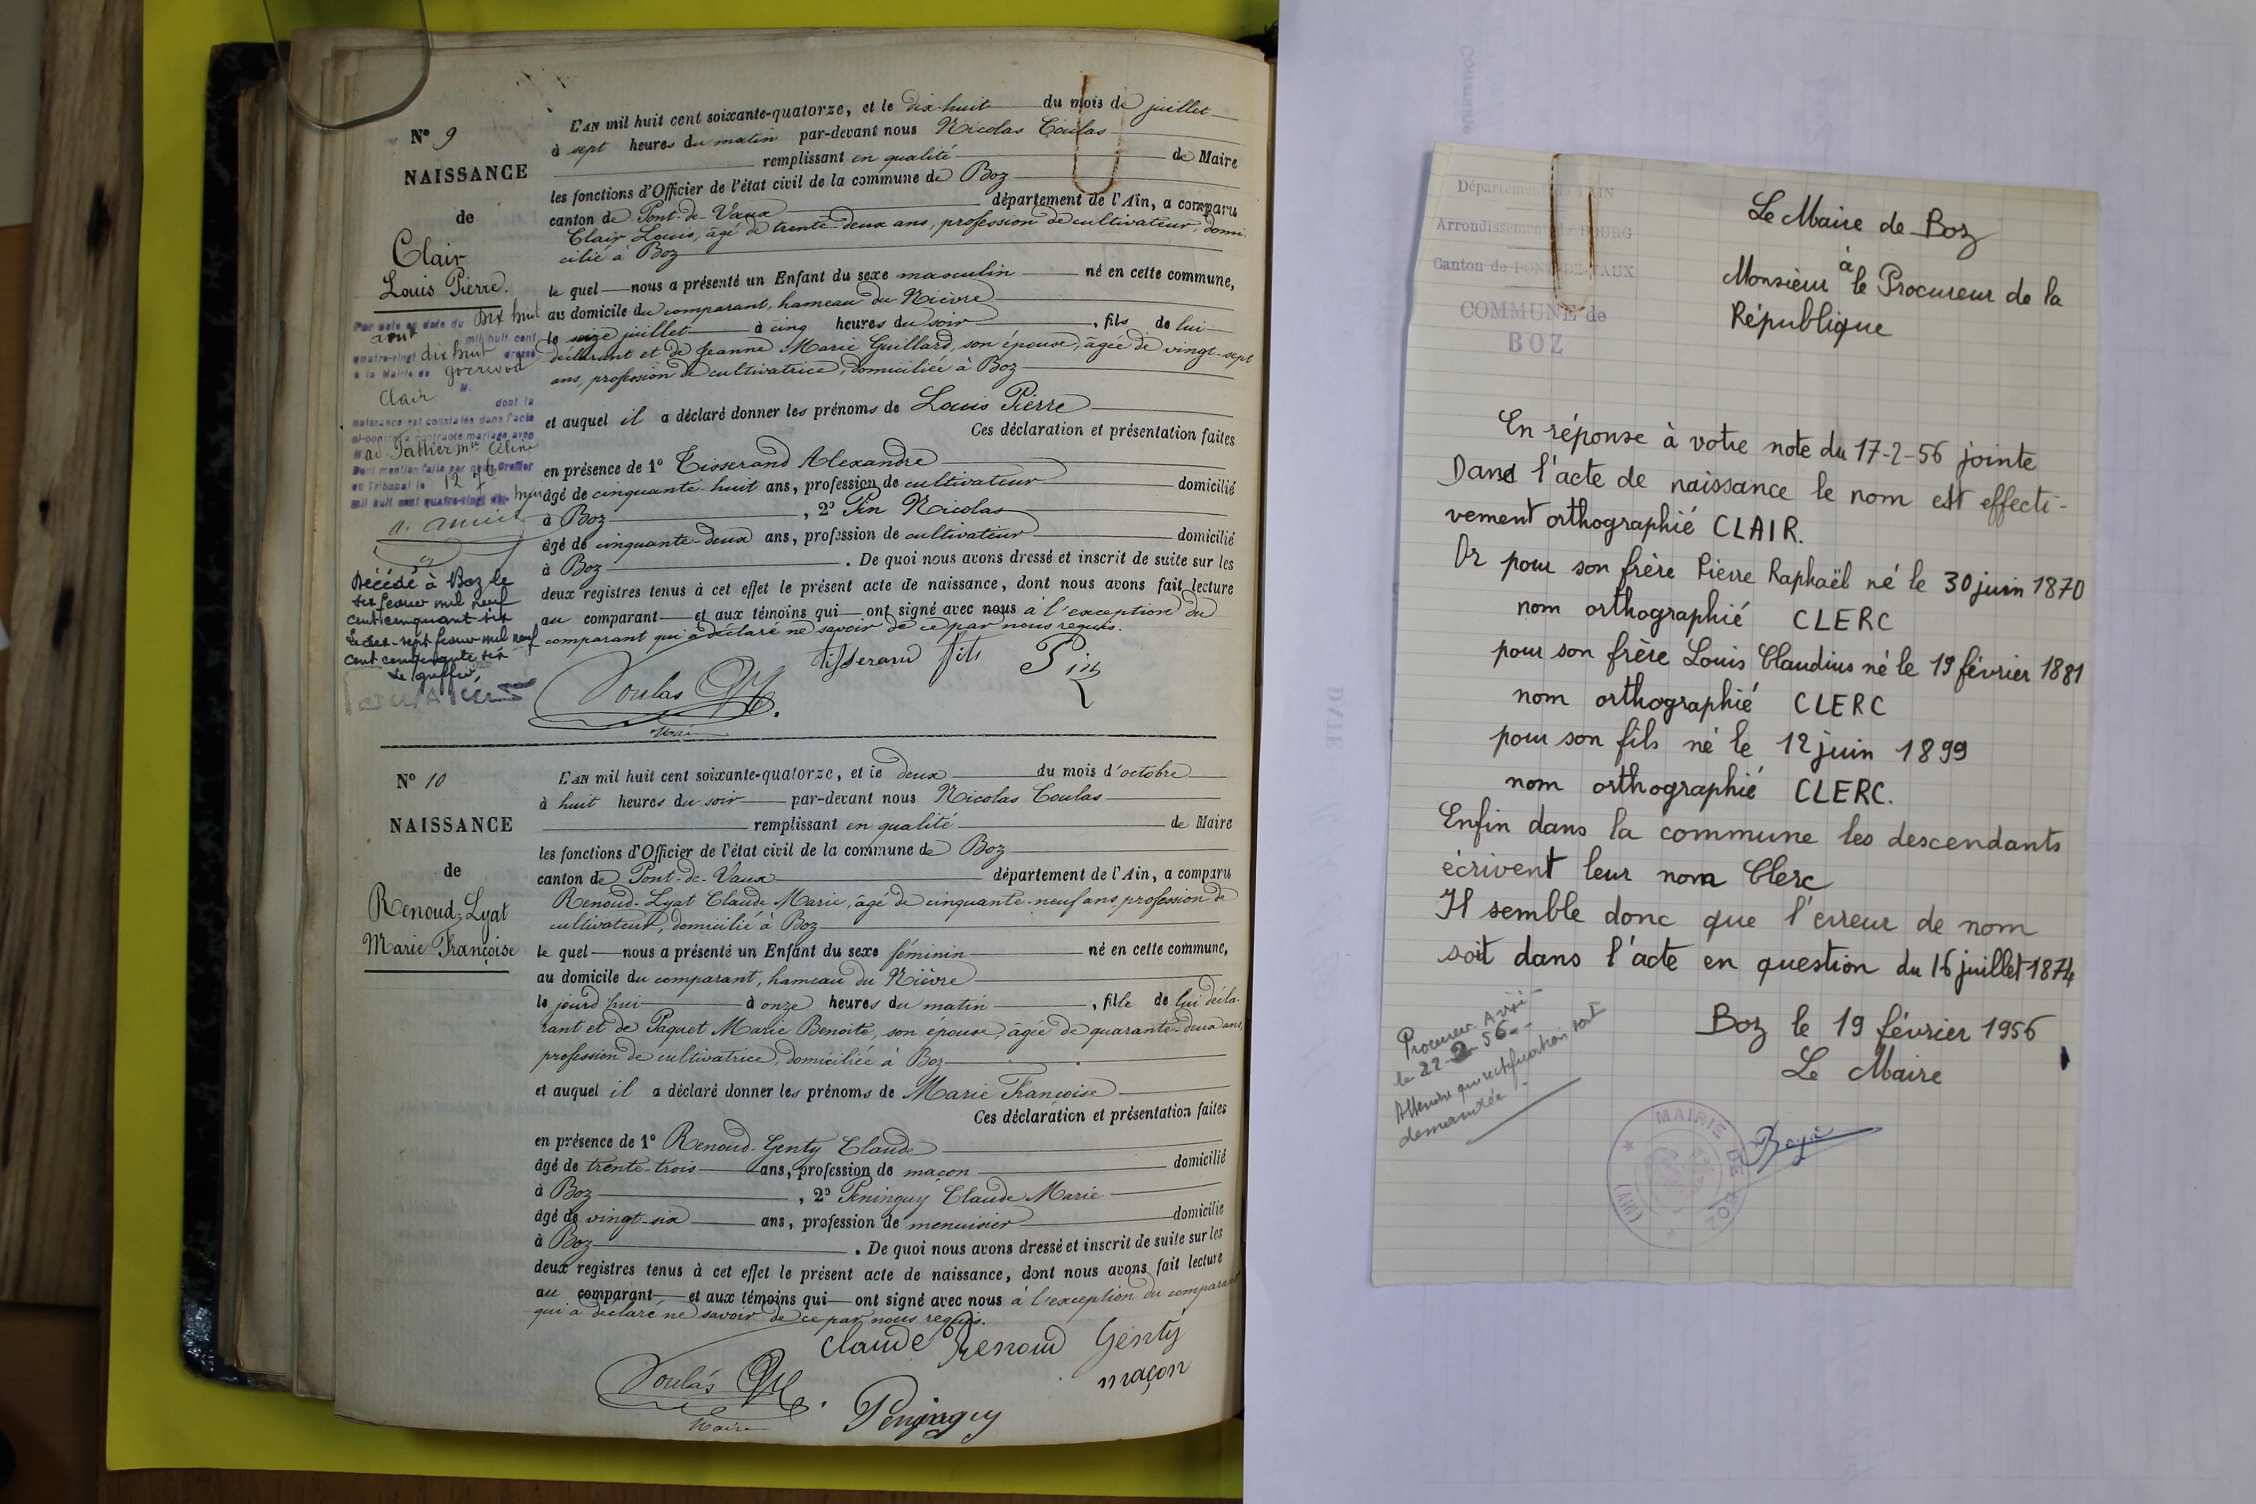 N° 9
NAISSANCE
de
Clair
Louis Pierre.
L'AN mil huit cent soixante-quatorze, et le dix-huit du mois de juillet
à sept heures du matin par-devant nous Nicolas Coulas
remplissant en qualité de Maire
les fonctions d'Officier de l'état civil de la commune de Boz
canton de Pont-de-Vaux département de l'Ain, a comparu
Clair Louis, âgé de trente-deux ans, profession de cultivateur, domi-
cilié à Boz
le quel nous a présenté un Enfant du sexe masculin né en cette commune,
au domicile du comparant, hameau du Nièvre
le seize juillet à cinq heures du soir, fils de lui
déclarant et de Jeanne Marie Guillard, son épouse, âgée de vingt-sept
ans, profession de cultivatrice, domiciliée à Boz
et auquel il a déclaré donner les prénoms de Louis Pierre
Ces déclaration et présentation faites
en présence de 1° Tisserand Alexandre
âgé de cinquante-huit ans, profession de cultivateur domicilié
à Boz, 2° Pin Nicolas
âgé de cinquante-deux ans, profession de cultivateur domicilié
à Boz. De quoi nous avons dressé et inscrit de suite sur les
deux registres tenus à cet effet le présent acte de naissance, dont nous avons fait lecture
au comparant et aux témoins qui ont signé avec nous à l'exception du
comparant qui a déclaré ne savoir de ce par nous requis.
Tisserand fils Pin
Coulas
Maire
Par acte en date du Dix huit
août mil huit cent
quatre-vingt dix huit dressé
à la Mairie de Gorrevod
M.
Clair dont la
naissance est constatée dans l'acte
ci-contre a contracté mariage avec
Céline
Dont mention faite par nous Greffier
du Tribunal le 12
mil huit cent quatre-vingt dix huit
Décédé à Boz le
six février mil neuf
cent cinquante six
Le dix-sept février mil neuf
cent cinquante six
Le greffier
N° 10
NAISSANCE
de
Renoud-Lyat
Marie Françoise
L'AN mil huit cent soixante-quatorze, et le deux du mois d'octobre
à huit heures du soir par-devant nous Nicolas Coulas
remplissant en qualité de Maire
les fonctions d'Officier de l'état civil de la commune de Boz
canton de Pont-de-Vaux département de l'Ain, a comparu
Renoud-Lyat Claude Marie, âgé de cinquante-neuf ans profession de
cultivateur, domicilié à Boz
le quel nous a présenté un Enfant du sexe féminin né en cette commune,
au domicile du comparant, hameau du Nièvre
le jourd'hui à onze heures du matin, fille de lui décla-
rant et de Paquet Marie Benoite, son épouse, âgée de quarante-deux ans,
profession de cultivatrice, domiciliée à Boz
et auquel il a déclaré donner les prénoms de Marie Françoise
Ces déclaration et présentation faites
en présence de 1° Renoud-Genty Claude
âgé de trente-trois ans, profession de maçon domicilié
à Boz, 2° Péninguy Claude Marie
âgé de vingt-six ans, profession de menuisier domicilié
à Boz. De quoi nous avons dressé et inscrit de suite sur les
deux registres tenus à cet effet le présent acte de naissance, dont nous avons fait lecture
au comparant et aux témoins qui ont signé avec nous à l'exception du comparant
qui a déclaré ne savoir de ce par nous requis.
Claude Renoud Genty
maçon
Coulas
Maire
Péninguy
Département de l'AIN
Arrondissement de BOURG
Canton de PONT-DE-VAUX
COMMUNE de
BOZ
Le Maire de Boz
à
Monsieur le Procureur de la
République
En réponse à votre note du 17-2-56 jointe
Dans l'acte de naissance le nom est effecti-
vement orthographié CLAIR.
Or pour son frère Pierre Raphaël né le 30 juin 1870
nom orthographié CLERC
pour son frère Louis Claudius né le 19 février 1881
nom orthographié CLERC
pour son fils né le 12 juin 1899
nom orthographié CLERC.
Enfin dans la commune les descendants
écrivent leur nom Clerc
Il semble donc que l'erreur de nom
soit dans l'acte en question du 16 juillet 1874
Boz le 19 février 1956
Le Maire
Procureur Avisé
le 22-2-56
Attendre que rectification soit
demandée.
MAIRIE DE BOZ
(AIN)